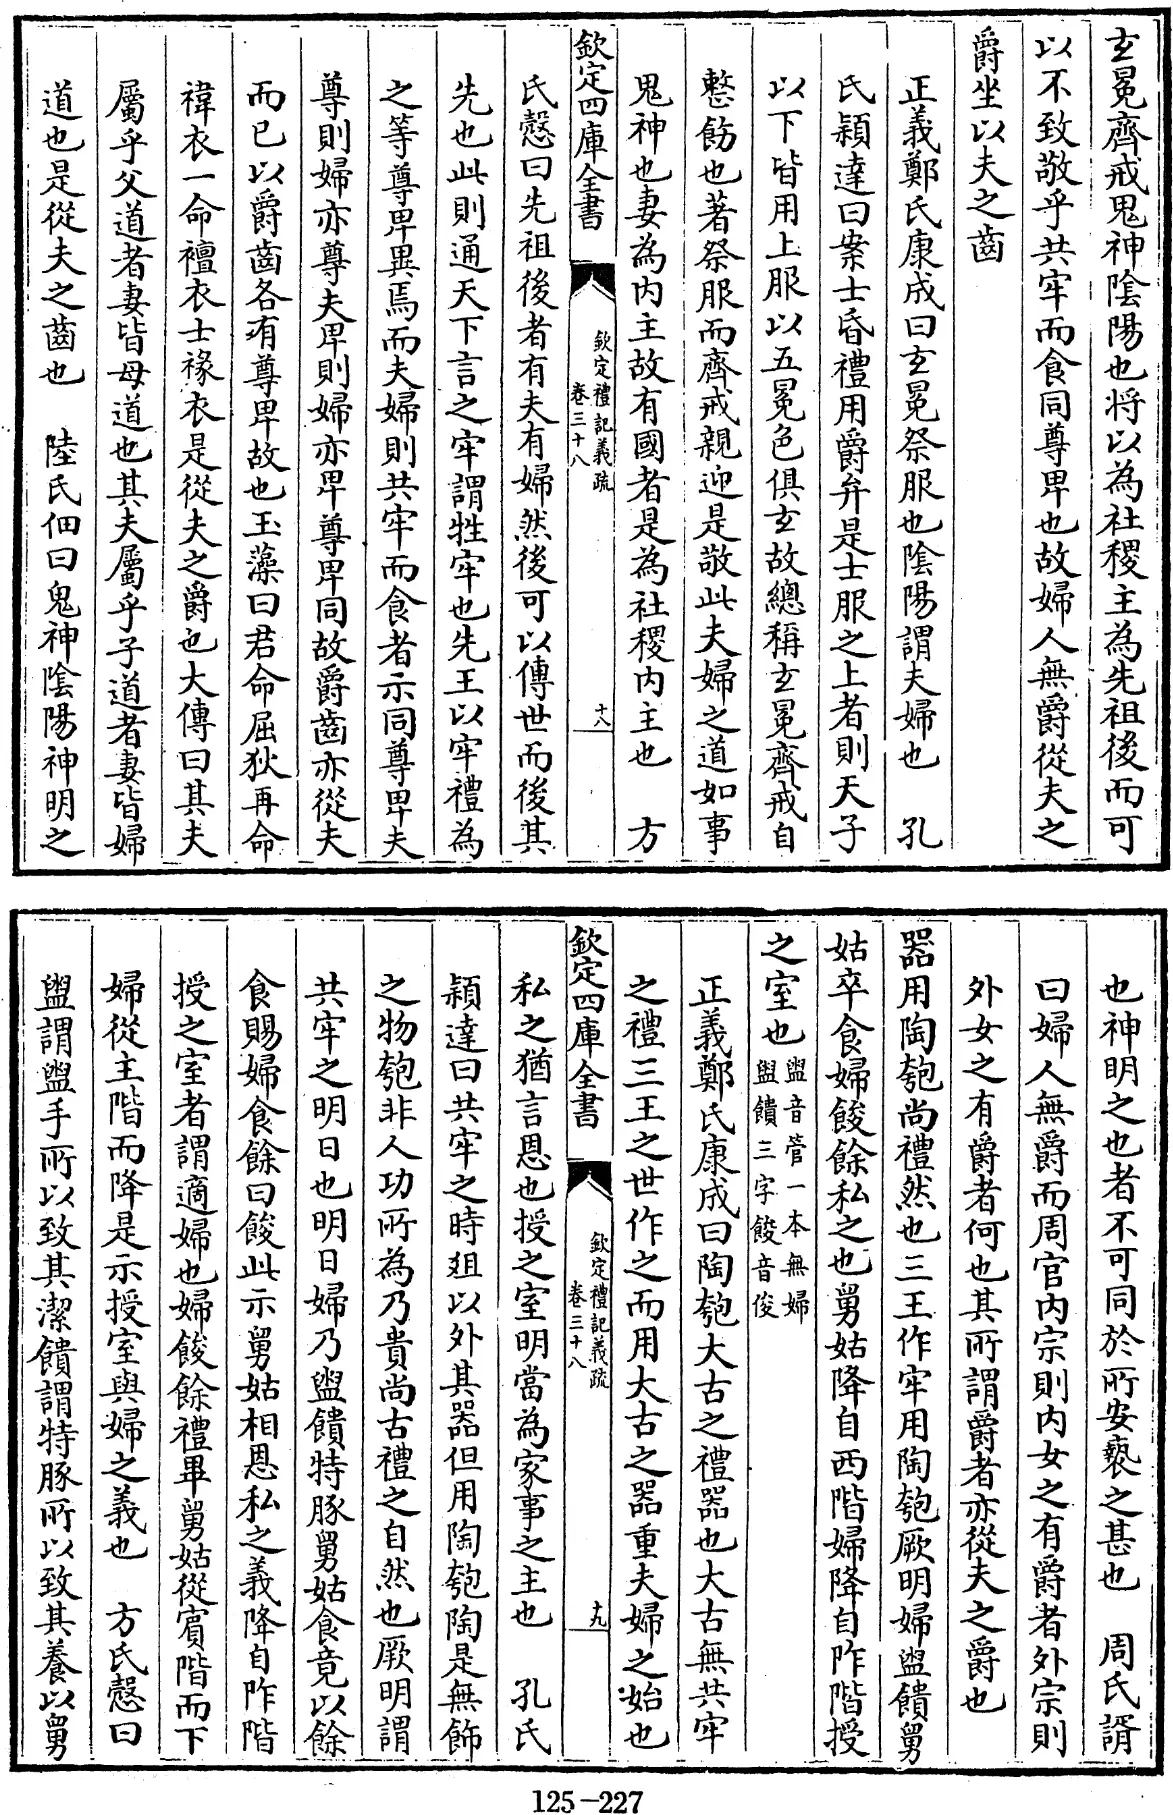 玄冕齊戒鬼神隂陽也将以為社稷主為先祖後而可
以不致敬乎共牢而食同尊卑也故婦人無爵從夫之
爵坐以夫之齒
正義鄭氏康成曰玄冕祭服也隂陽謂夫婦也　孔
氏穎達曰案士昏禮用爵弁是士服之上者則天子
以下皆用上服以五冕色俱玄故總稱玄冕齊戒自
整飭也著祭服而齊戒親迎是敬此夫婦之道如事
鬼神也妻為内主故有國者是為社稷内主也　方
欽定四庫全書
欽定禮記義疏
卷三十八
十八
氏慤曰先祖後者有夫有婦然後可以傳世而後其
先也此則通天下言之牢謂牲牢也先王以牢禮為
之等尊卑異焉而夫婦則共牢而食者示同尊卑夫
尊則婦亦尊夫卑則婦亦卑尊卑同故爵齒亦從夫
而已以爵齒各有尊卑故也玉藻曰君命屈狄再命
褘衣一命襢衣士褖衣是從夫之爵也大傳曰其夫
屬乎父道者妻皆母道也其夫屬乎子道者妻皆婦
道也是從夫之齒也　陸氏佃曰鬼神隂陽神明之
也神明之也者不可同於所安褻之甚也　周氏諝
曰婦人無爵而周官内宗則内女之有爵者外宗則
外女之有爵者何也其所謂爵者亦從夫之爵也
器用陶匏尚禮然也三王作牢用陶匏厥明婦盥饋舅
姑卒食婦餕餘私之也舅姑降自西階婦降自阼階授
之室也盥音管一本無婦
盥饋三字餕音俊
正義鄭氏康成曰陶匏大古之禮器也大古無共牢
之禮三王之世作之而用大古之器重夫婦之始也
欽定四庫全書
欽定禮記義疏
卷三十八
十九
私之猶言恩也授之室明當為家事之主也　孔氏
穎達曰共牢之時俎以外其器但用陶匏陶是無飾
之物匏非人功所為乃貴尚古禮之自然也厥明謂
共牢之明日也明日婦乃盥饋特豚舅姑食竟以餘
食賜婦食餘曰餕此示舅姑相恩私之義降自阼階
授之室者謂適婦也婦餕餘禮畢舅姑從賓階而下
婦從主階而降是示授室與婦之義也　方氏慤曰
盥謂盥手所以致其潔饋謂特豚所以致其養以舅
125-227